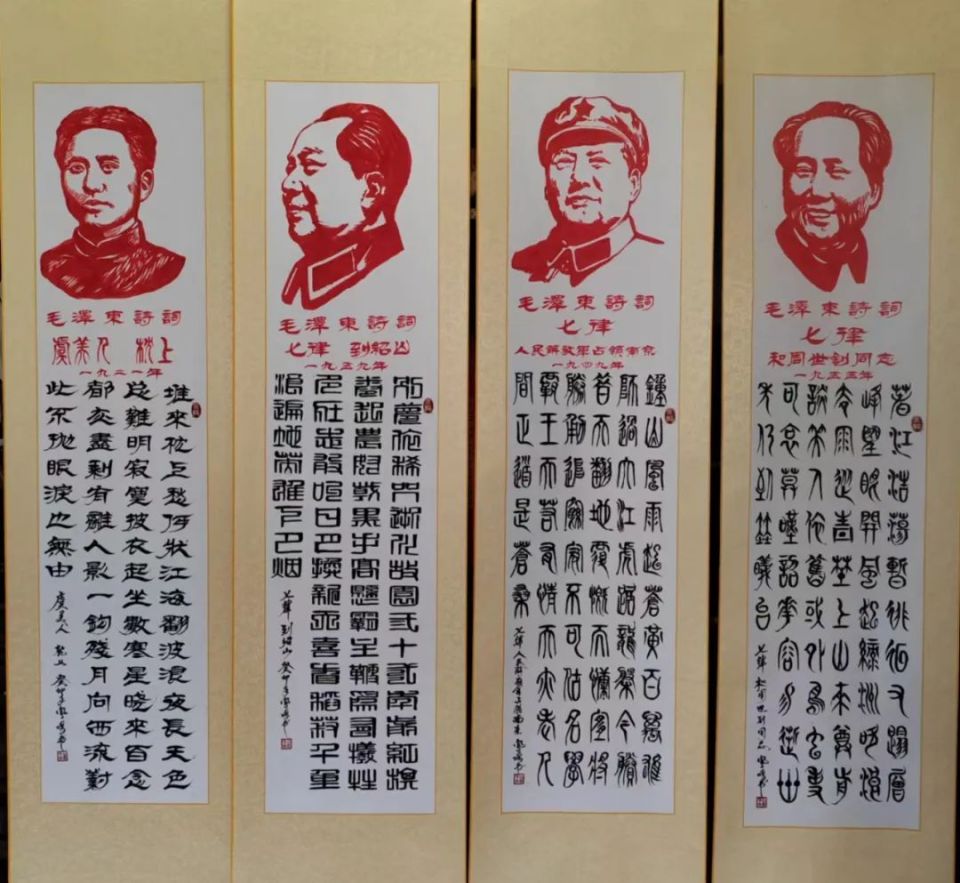 毛澤東詩詞
虞美人 枕上
一九二一年
堆来枕上愁何状江海翻波浪夜長天色
总難明寂寞披衣起坐數寒星晓来百念
都灰盡剩有離人影一鈎殘月向西流對
此不抛眼淚也無由
虞美人 枕上 癸卯年
毛澤東詩詞
七律 到紹山
一九五九年
別夢依稀咒逝川故園弎十弍年前紅旗
卷起農奴戟黑手高懸霸主鞭為有犧牲
多壯志敢教日月換新天喜看稻菽千重
浪遍地英雄下夕烟
七律 到韶山 癸卯年
毛澤東詩詞
七律
人民解放軍占領南京
一九四九年
鍾山風雨起蒼黄百萬雄
師過大江虎踞龍盤今勝
昔天翻地覆慨而慷宜將
剩勇追窮寇不可沽名學
霸王天若有情天亦老人
間正道是蒼桑
七律 人民解放軍占領南京
毛澤東詩詞
七律
和同世釗同志
一九五五年
春江浩蕩暫徘徊又踏層
峰望眼開風起綠洲吹浪
去雨從青野上山來尊前
談笑人依舊域外雞蟲事
可哀莫嘆韶華容易逝卅
年仍到赫曦台
七律 和周世釗同志